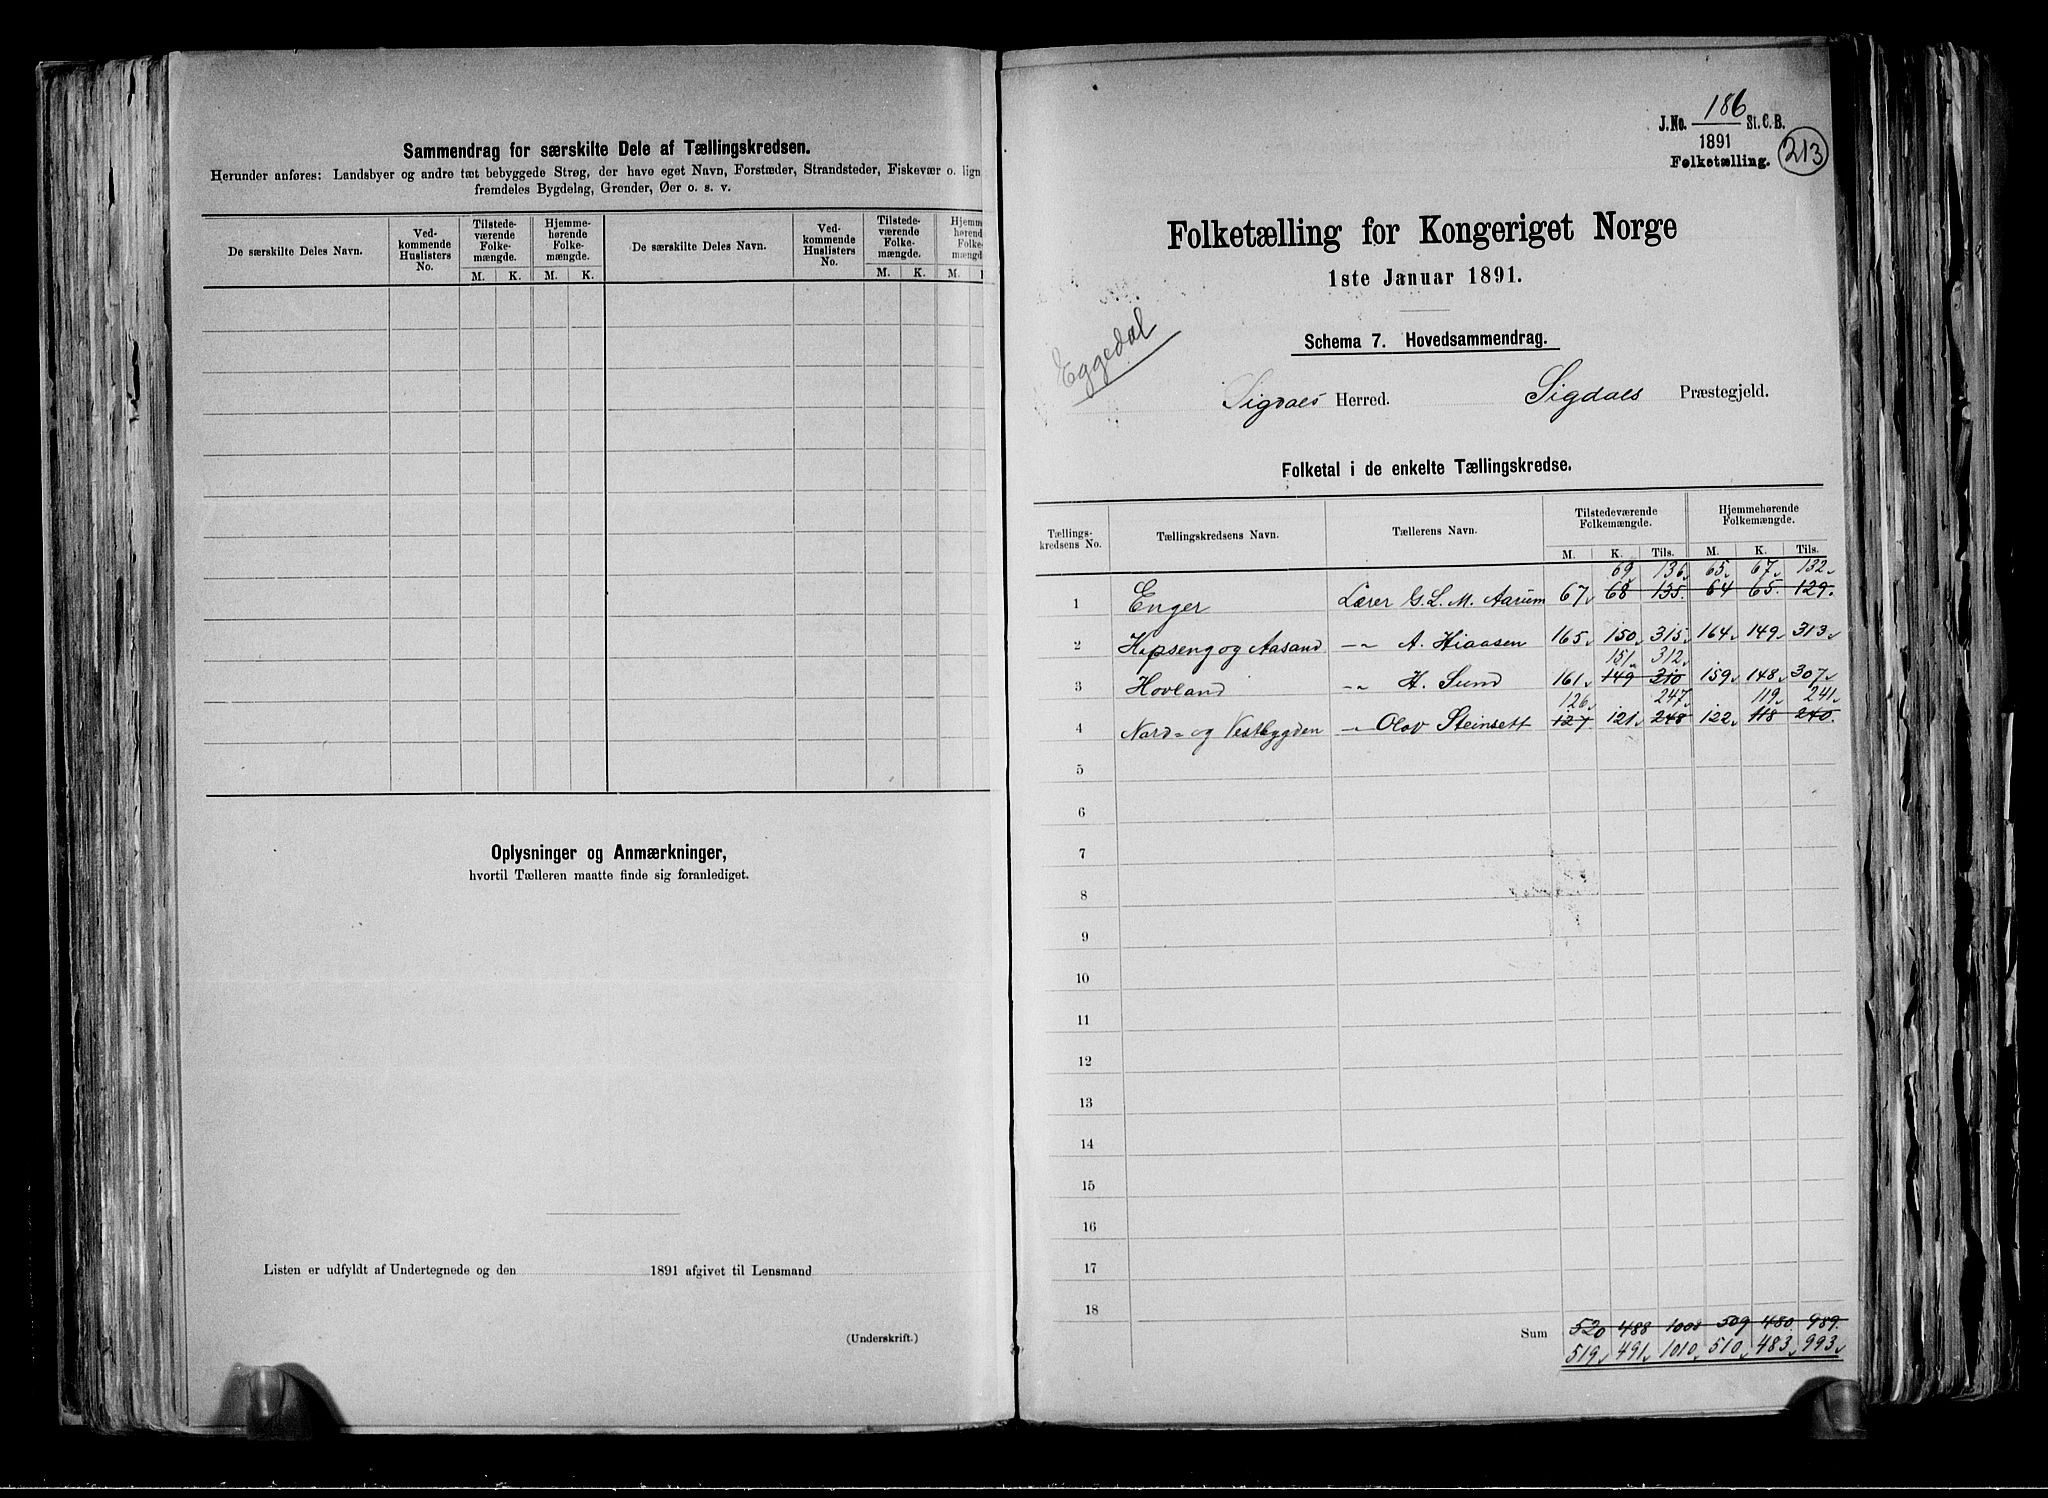 Sammendrag for særskilte Dele af Tællingskredsen.
Herunder anføres: Landsbyer og andre tæt bebyggede Strøg, der have eget Navn, Forstæder, Strandsteder, Fiskevær o. lign
fremdeles Bygdelag, Grender, Øer o. s. v.
De særskilte Deles Navn. Ved- kommende Huslisters No. Tilstede- værende Folke- mængde. Hjemme- hørende Folke- mængde. De særskilte Deles Navn. Ved- kommende Huslisters No. Tilstede- værende Folke- mængde. Hjemm hørend Folke- mængd
M. K. M. K. M. K. M.
Oplysninger og Anmærkninger,
hvortil Tælleren maatte finde sig foranlediget.
Listen er udfyldt af Undertegnede og den 1891 afgivet til Lensmand
(Underskrift.)
J. No. 186 St. C. B.
1891
Folketælling.
213
Folketælling for Kongeriget Norge
1ste Januar 1891.
Eggedal
Schema 7. Hovedsammendrag.
Sigdals Herred. Sigdals Præstegjeld.
Folketal i de enkelte Tællingskredse.
Tællings- kredsens No. Tællingskredsens Navn. Tællerens Navn. Tilstedeværende Folkemængde. Hjemmehørende Folkemængde.
M. K. Tils. M. K. Tils.
69 136 65 67 132
1 Enger Lærer G. L. M. Aarum 67 68 135 64 65 129
2 Kopseng og Aasand -"- A. Hiaasen 165 150 315 164 149 313
151 312
3 Hovland -"- H. Sund 161 149 310 159 148 307
126 247 119 241
4 Nord- og Vestbygden -"- Olov Steinsett 127 121 248 122 118 240
5
6
7
8
9
10
11
12
13
14
15
16
17
18
Sum 520 488 1008 509 480 989
519 491 1010 510 483 993